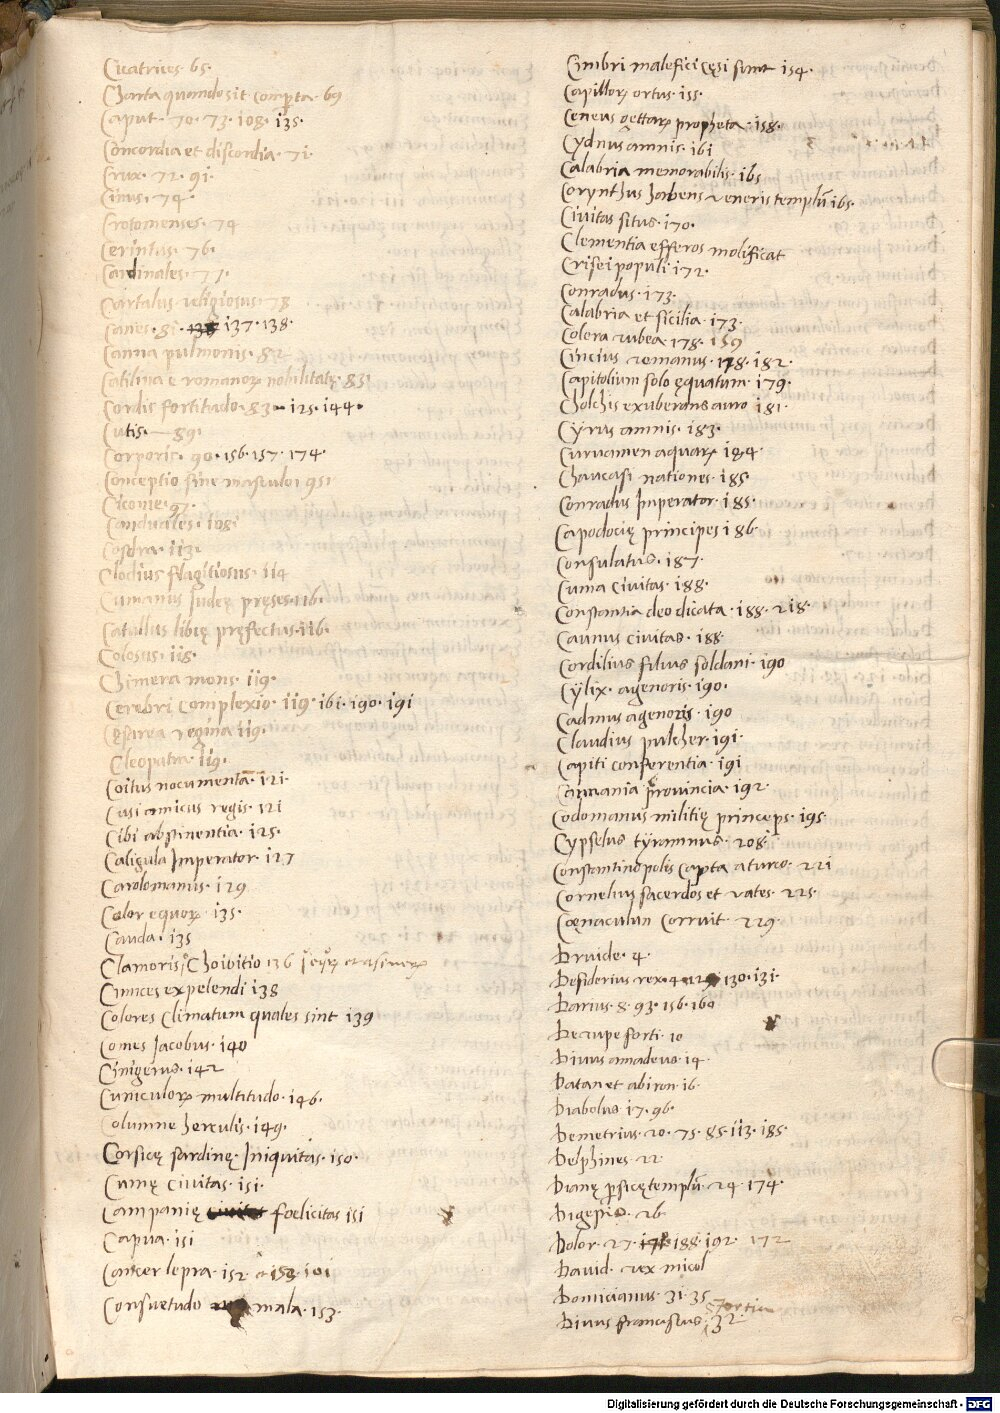 Cicatrices. 65.
Charta quando sit comperta. 69
Caput. 70. 73. 108. 135.
Concordia et discordia. 71.
Crux. 72. 91.
Cinus. 74.
Crotonenses. 74
Cerintus. 76.
Cardinales. 77.
religiosus. 78
Canes. 81. 137. 138.
Canna pulmonis. 82
Catilina e romanoꝝ nobilitatę. 83
Cordis fortitudo. 83. 125. 144.
Cutis. 89.
Corporis. 90. 156. 157. 174.
Conceptio sine masculo. 95.
Ciconie. 97.
108.
113.
Clodius flagitiosus. 114
Cumanus Judeę pręses. 116.
Catullus libię pręfectus. 116.
Colossus. 118.
Chimera mons. 119.
Cerebri complexio. 119. 161. 190. 191
Cesarea regina 119.
Cleopatra. 119.
Coitus nocumenta. 121.
Casi amicus regis. 121
Cibi abstinentia. 125.
Caligula Imperator. 127
Carolomanus. 129
Color equoꝝ. 135.
Cauda. 135
Clamoris Choibitio 136
Cimices expelendi 138
Colores Climatum quales sint 139
Comes Jacobus. 140
Cinigerus. 142
Cuniculoꝝ multitudo. 146.
Columne herculis. 149.
Corsicę sardinę. Iniquitas. 150.
Cumę civitas. 151.
Campanię foelicitas 151
Capua. 151
Cancer lepra. 152. 153. 101
Consuetudo mala. 153.
Cimbri malefici cęsi sunt 154.
Capilloꝝ ortus. 155.
Ceneus gettaꝝ propheta. 158.
Cydnus amnis. 161
Calabria memorabilis. 165
Corynthus habens veneris templū 165.
Civitas situs. 170.
Clementia efferos molificat
Crisei populi 172.
Conradus. 173.
Calabria et sicilia. 173.
Colera rubea. 178. 159
Cincius romanus. 178. 182.
Capitolium solo ęquatum. 179.
Cholchis exuberans auro 181.
Cyrus amnis. 183.
Curvamen aquaꝝ 184.
Chaucasi nationes. 185.
Conradus Imperator. 185.
Capodocię principes 186.
Consulatus. 187.
Cuma civitas. 188.
Constantia deo dicata. 188. 218.
Caunus civitas. 188.
Cordilius filius soldani. 190
Cÿlix. agenoris. 190.
Cadmus agenoris. 190
Claudius pulcher. 191.
Capiti conferentia. 191
Carmania provincia. 192.
Codomanus militię princeps. 195.
Cypselus tÿrannus. 208.
Constantinopolis capta a turco. 221
Cornelius sacerdos et vates. 225.
Cœnaculun Corruit. 229.
Druide. 4.
Desiderius rex. 130. 131.
Darius. 8. 93. 156. 160
De rupe forti. 10
Divus amadeus. 14.
Datan et abiron. 16.
Diabolus. 17. 96.
Demetrius. 20. 75. 85. 113. 185.
Delphines. 22.
Dianę persicę templū. 24. 174.
Digestio. 26.
Dolor. 27. 171. 188. 192. 172
David. rex nicol
Domicianus. 31. 35.
Divus franciscus. 32. Sfortia